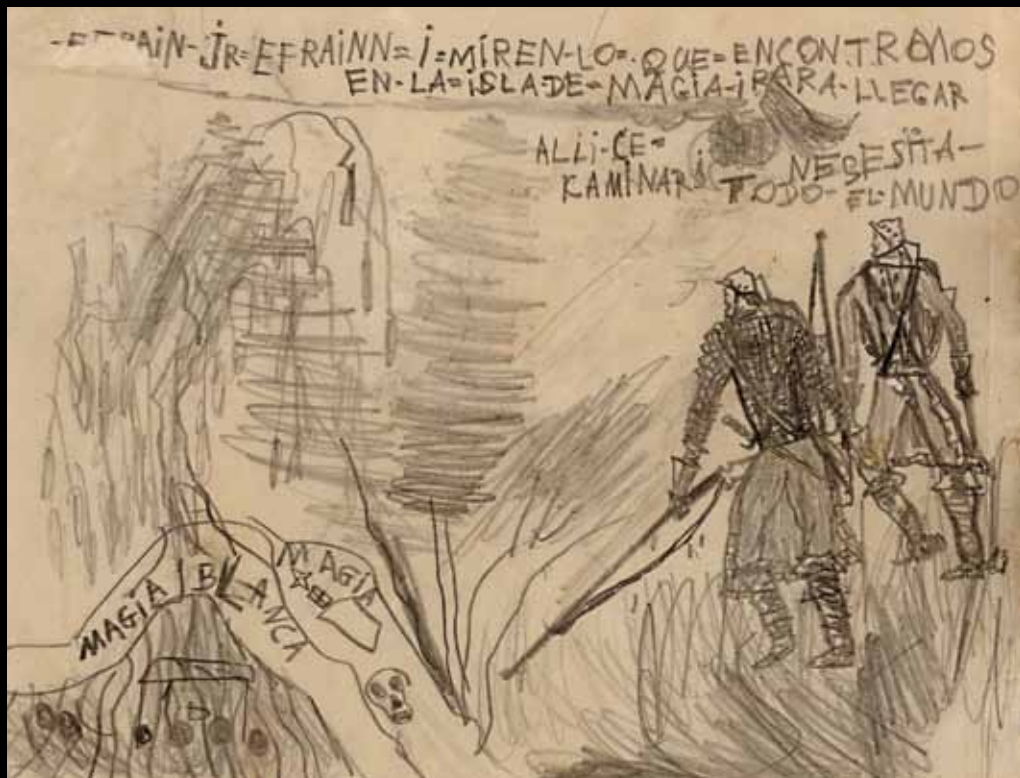 JR=EFRAiNN=i=MiREN-LO=.QUE=ENCONTRAMOS
EN-LA=iSLA-DE=MAGiA-iPARA-LLEGAR
ALLi-CE= NECESiTA-
KAMiNAR i TODO-EL-MUNDO
MAGiA BLANCA
MAGiA